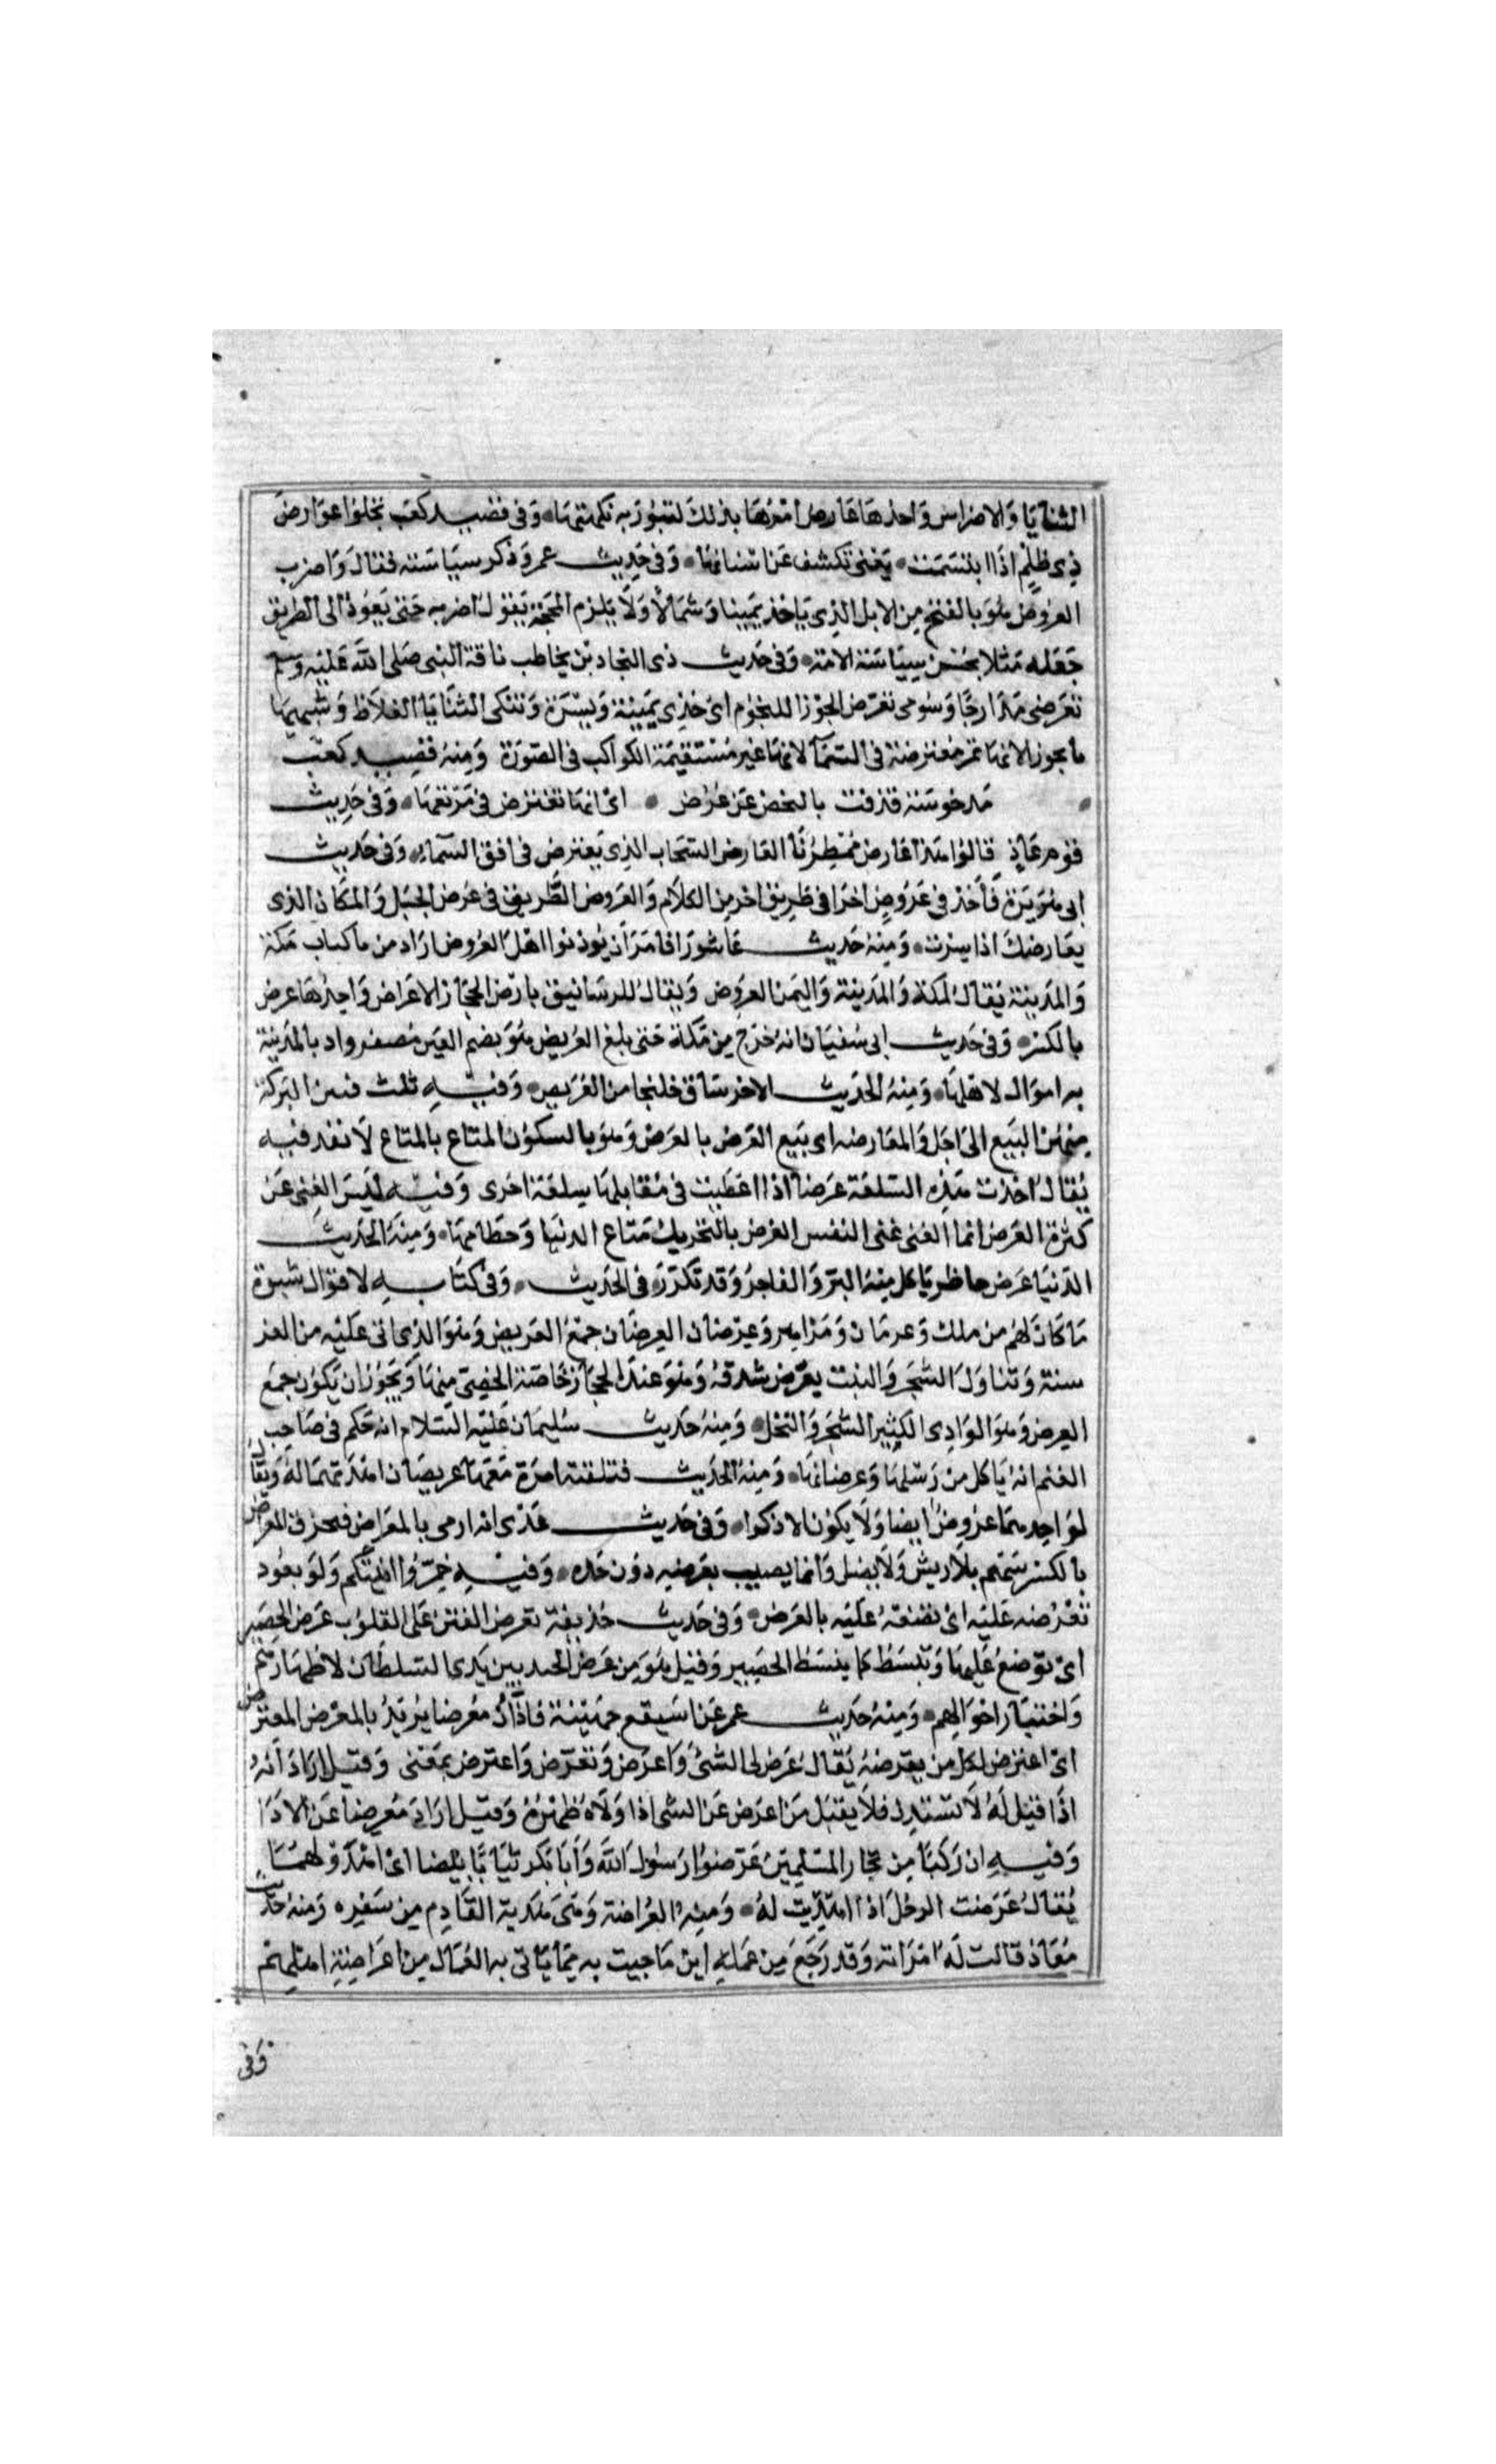 الثنايا والاضراس واحدها عارض امرها بذلك لتبور به نكهتها وفى قصيد كعب تجلوا عوارض
ذى ظلم اذا ابتسمت يعنى تكشف عن اسنانها وفى حديث عمر وذكر سياسته فقال واضرب
العروض هو بالفتح من الابل الذى ياخذ يمينا وشمالا ولا يلزم المحجة يقول اضربه حتى يعود الى الطريق
جعله مثلا بحسن سياسة الامة وفى حديث ذى البجادين يخاطب ناقة النبى صلى الله عليه وسلم
تعرضى مدارجا وسومى تعرض الجوزا للنجوم اى خذى يمينة ويسرة وتنكبى الثنايا الغلاظ وشبهها
بالجوزا لانها تمر معترضة فى السمآ لانها غير مستقيمة الكواكب فى الصورة ومنه قصيد كعب
مدخوسة قذفت بالنحض عن عرض اى انها تعترض فى مرتعها وفى حديث
قوم عاد قالوا هذا عارض ممطرنا العارض السحاب الذى يعترض فى افق السماء وفى حديث
ابى هريرة فأخذ فى عروض اخر اى فى طريق اخر من الكلام والعروض الطريق فى عرض الجبل والمكان الذى
يعارضك اذا سرت ومنه حديث عاشورا فامر ان يوذنوا اهل العروض اراد من باكناف مكة
والمدينة يقال لمكة والمدينة واليمن العروض ويقال للرساتيق بارض الحجاز الاعراض واحدها عرض
بالكسر وفى حديث ابى سفيان انه خرج من مكة حتى بلغ العريض هو بضم العين مصغر واد بالمدينة
به اموال لاهلها ومنه الحديث الاخر ساق خليجا من العريض وفيه ثلث فيهن البركة
منهن البيع الى اجل والمعارضه اى بيع العرض بالعرض وهو بالسكون المتاع بالمتاع لا نقد فيه
يقال اخذت هذه السلعة عرضا اذا اعطيت فى مقابلها سلعة اخرى وفيه ليس الغنى عن
كثرة العرض انما الغنى غنى النفس العرض بالتحريك متاع الدنيا وحطامها ومنه الحديث
الدنيا عرض حاظر ياكل منه البر والفاجر وقد تكرر فى الحديث وفى كتابه لاقوال شبوة
ما كان لهم من ملك وعرمان ومزاهر وعرضان العرضان جمع العريض وهو الذى اتى عليه من المعز
سنة وتناول الشجر والنبت بعرض شدقه وهو عند اهل الحجاز خاصة الخصى منها ويجوز ان يكون جمع
العرض وهو الوادى الكثير الشجر والنخل ومنه حديث سليمان عليه السلام انه حكم فى صاحب
الغنم انه ياكل من رسلها وعرضانها ومنه الحديث فتلقته امرة معها عريضان اهدتهما له ويقال
لواحدهما عروض ايضا ولا يكون الا ذكرا وفى حديث عدى انى ارمى بالمعراض فيخزق المعراض
بالكسر سهم بلا ريش ولا نصل وانما يصيب بعرضه دون حده وفيه خمروا انيتكم ولو بعود
تعرضه عليه اى تضعه عليه بالعرض وفى حديث حذيفة تعرض الفتن على القلوب عرض الحصير
اى توضع عليها وتبسط كما يبسط الحصير وقيل هو من عرض الجند بين يدى السلطان لاظهارهم
واختبار احوالهم ومنه حديث عمر عن اسيفع جهينة فادآن معرضا يريد بالمعرض المعترض
اى اعترض لكل من يقرضه يقال عرض لى الشئ واعرض وتعرض واعترض بمعنى وقيل اراد انه
اذا قيل له لا تستدن فلا يقبل من اعرض عن الشى اذا ولاه ظهره وقيل اراد معرضا عن الادا
وفيه ان ركبا من تجار المسلمين عرضوا رسول الله وابا بكر ثيابا بيضا اى اهدوا لهما
يقال عرضت الرجل اذا اهديت له ومنه العراضة وهى هدية القادم من سفره ومنه حديث
معاذ قالت له امراته وقد رجع من عمله اين ما جيت به مما ياتى به العمال من اعراضة اهلهم
وفى